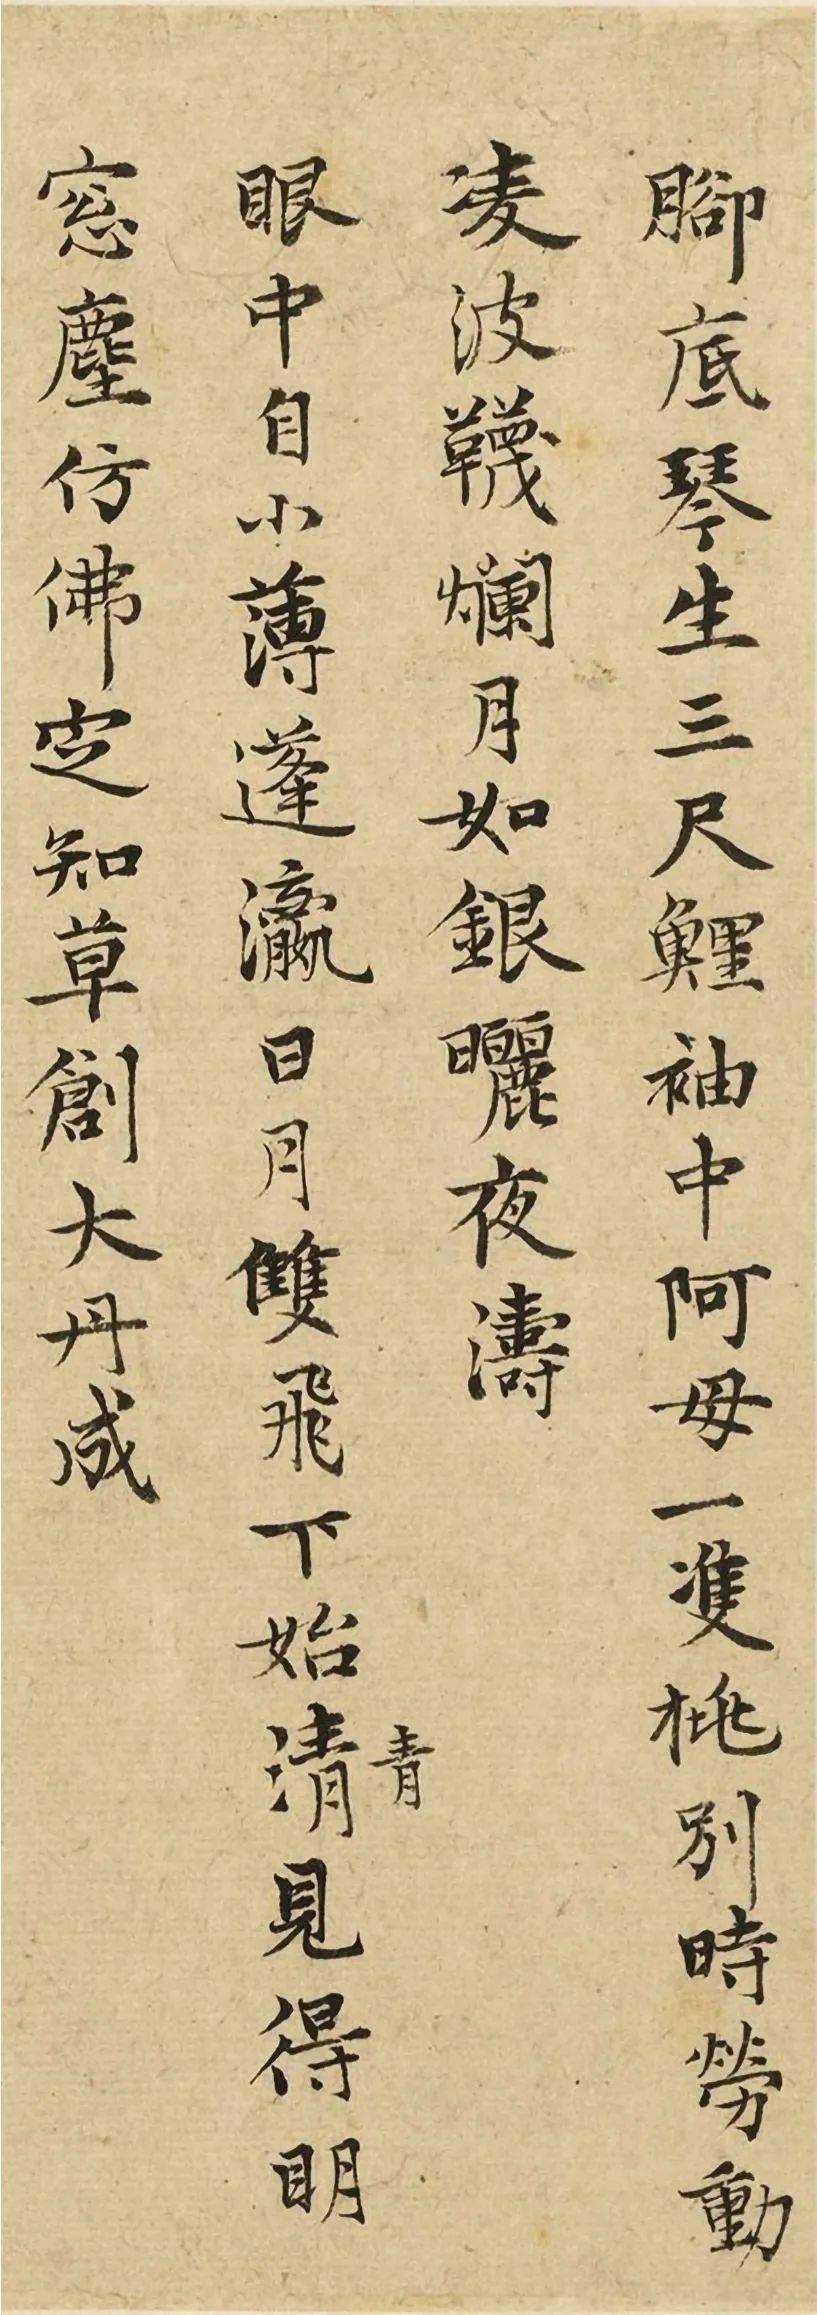 腳底琴生三尺鯉袖中阿母一雙桃別時勞動
凌波韈爛月如銀曬夜濤
眼中自小薄蓬瀛日月雙飛下始清見得明
青
窓塵仿佛定知草創大丹成